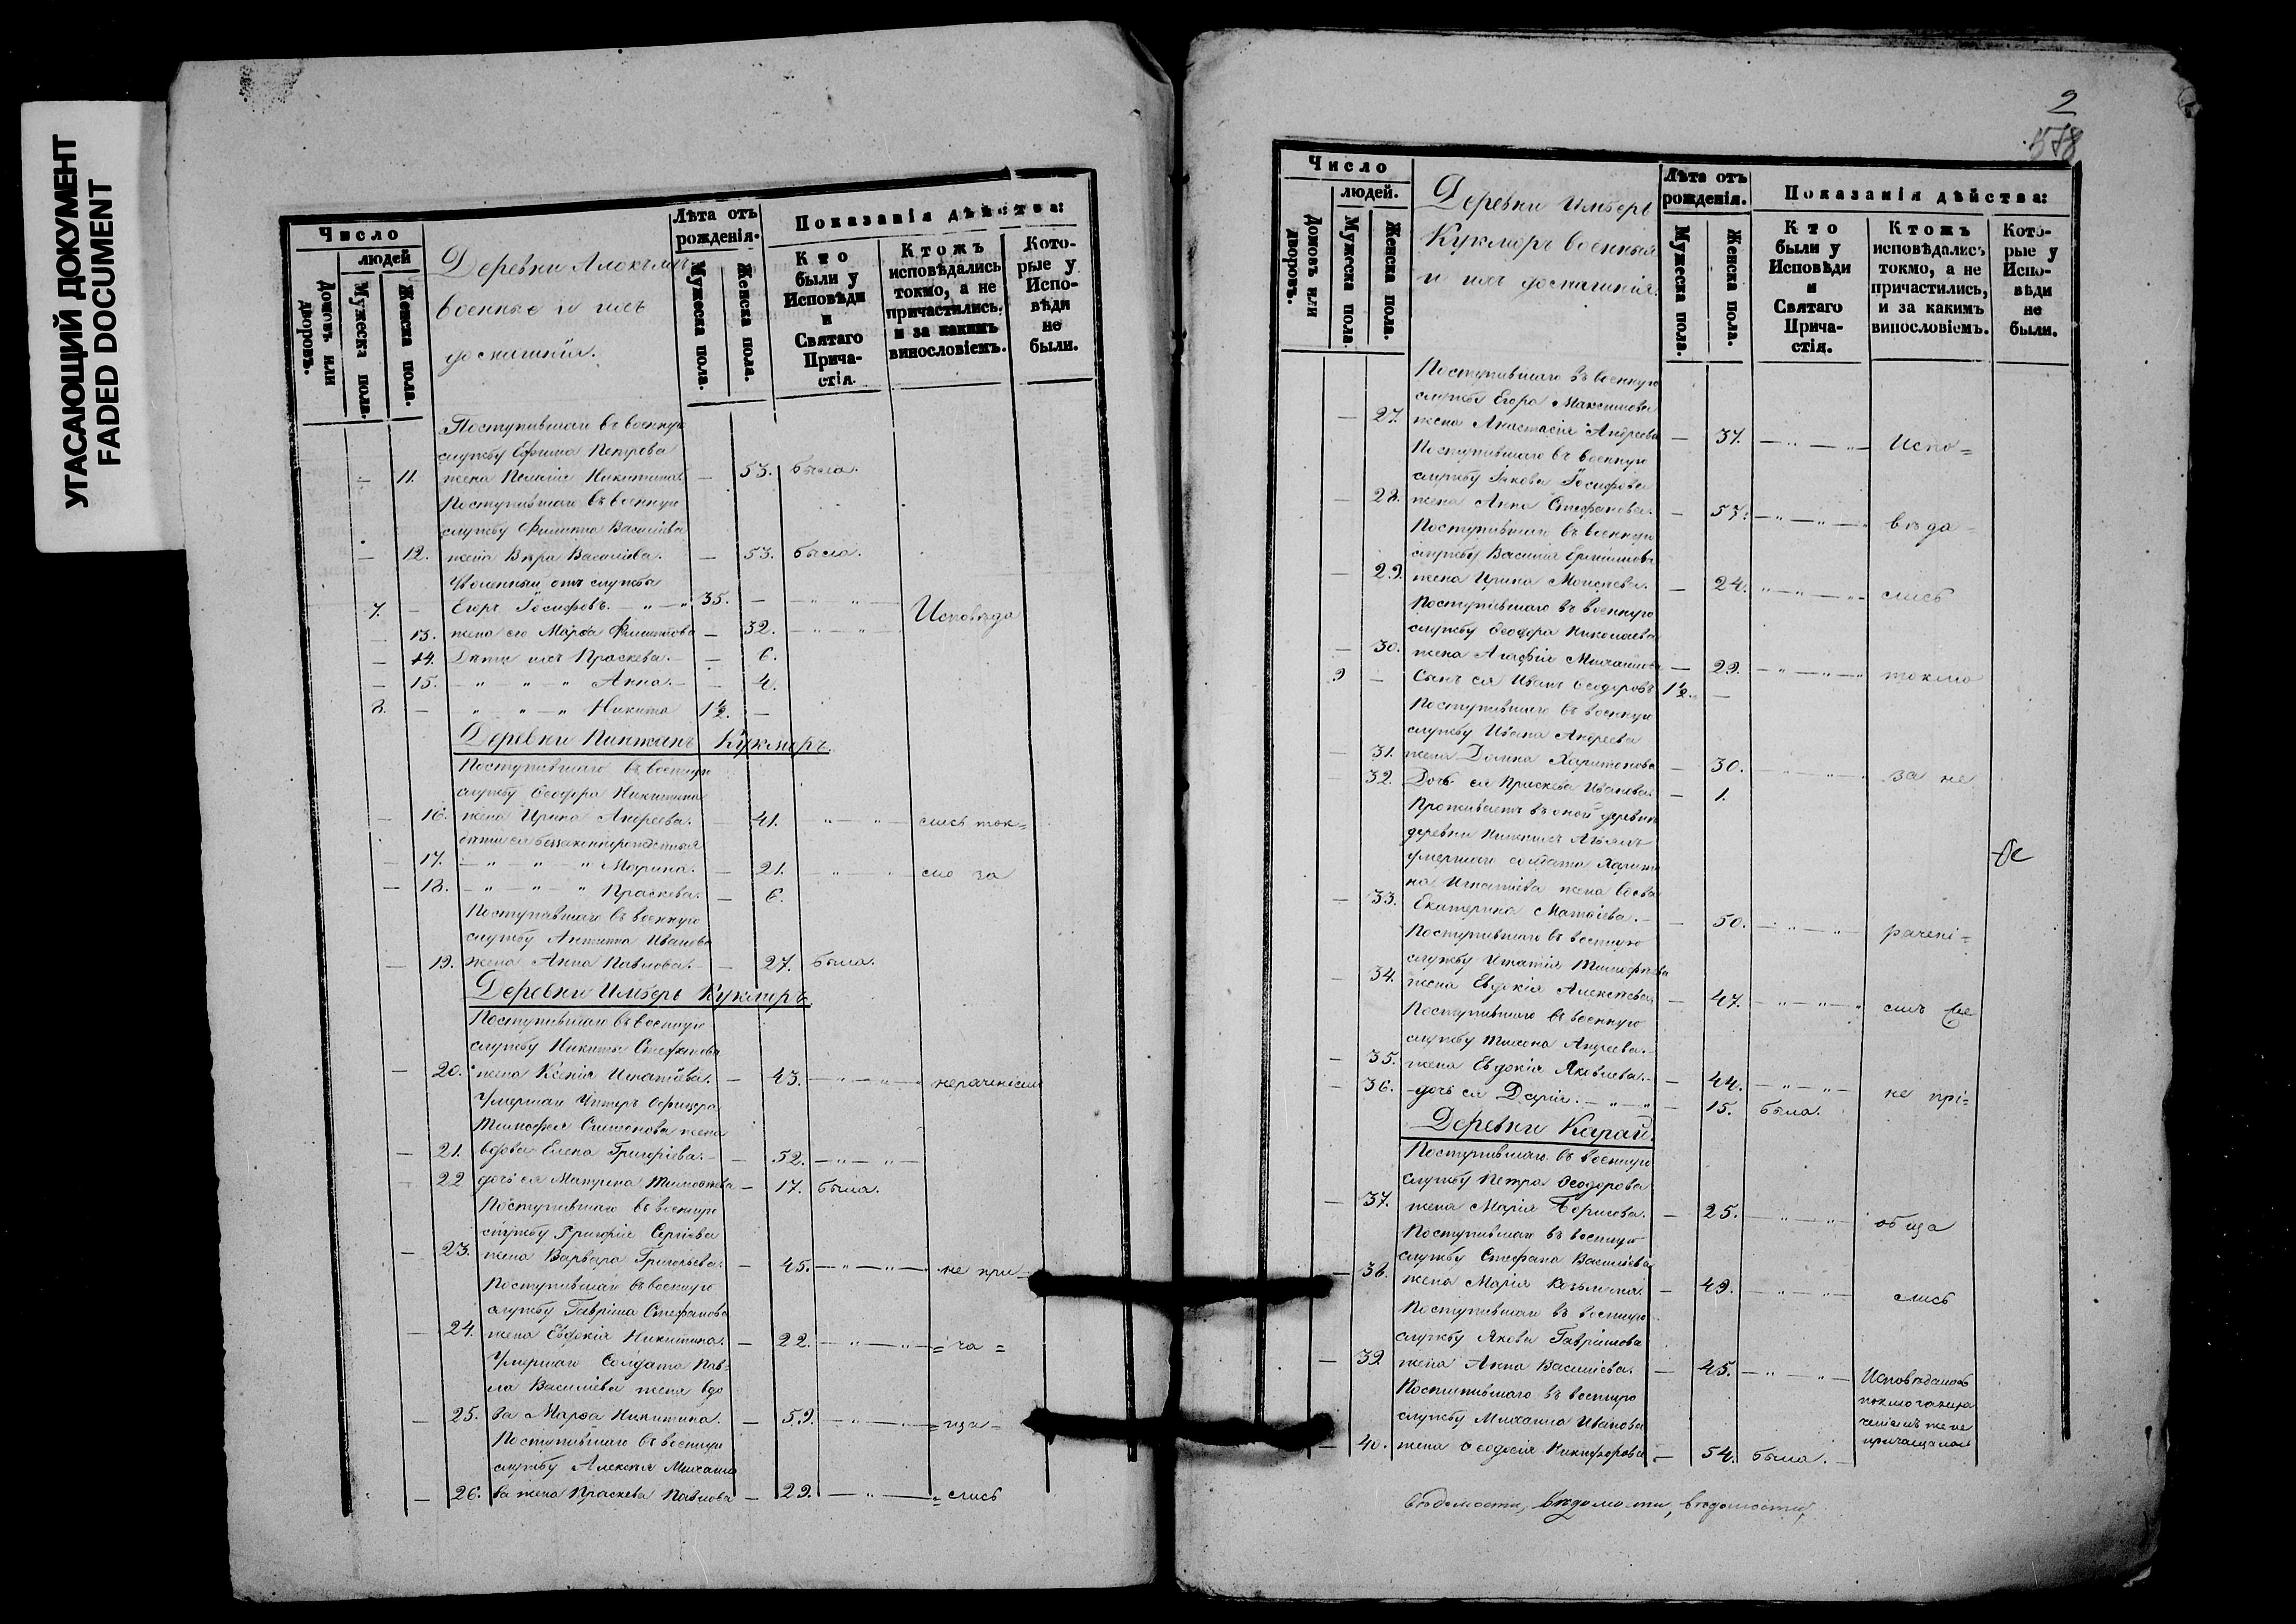 УГАСАЮЩИЙ ДОКУМЕНТ
FADED DOCUMENT
Число
людей
Домовъ или дворовъ.
Мужеска пола.
Женска пола.
Деревни
военные и ихъ
домашнія.
Лѣта отъ рожденія.
Мужеска пола.
Женска пола.
Показанія дѣйства:
Кто были у Исповѣди и Святаго Прича-стія.
Ктожъ исповѣдались токмо, а не причастились, и за какимъ винословіемъ.
Кото-рые у Испо-вѣди не были.
Поступившаго въ военную
службу Ефима Петрова
— 11. жена Никитина — 53. была.
Поступившаго въ военную
службу Филиппа Василіева
— 12. жена Вѣра Василіева. — 53. была.
Уволенный отъ службы
7. — Егоръ Іосифовъ. — " — " 35. — " — " Исповѣда
— 13. жена его Марѳа Филиппова — 32. — " — "
— 14. Дѣти ихъ Праскева. — — 6.
— 15. — " — " — " Анна. — — 4.
8. — " — " — " Никита 1½. —
Деревни Пинжанъ Кукморъ.
Поступившаго въ военную
службу Ѳеодора Никитина
— 16. жена Ирина Андреева. — 41. " — " — лись ток=
дѣти ея беззаконнорожденныя
— 17. — " — " — " Марина. — 21. — " — мо за
— 18. — " — " — " Праскева. — 6.
Поступившаго въ военную
службу Антипа Иванова
— 19. жена Анна Павлова. — — 27. была.
Деревни Имберь Кукморъ.
Поступившаго въ военную
службу Никиты Стефанова
— 20. жена Ксенія Игнатіева. — 43. — " — " — нераченіемъ
Умершаго Унтеръ Офицера
Тимофея Симонова жена
— 21. вдова Елена Григоріева. — — 52. — " — "
— 22 дочь ея Матрена Тимофеева — 17. была.
Поступившаго въ военную
службу Григорія Сергіева
— 23. жена Варвара Григорьева. — 45. — " — " — не при=
Поступившаго въ военную
службу Гавріила Стефанова
— 24. жена Евдокія Никитина. — 22. — " — " — = ча =
Умершаго Солдата Пав=
ла Василіева жена вдо
— 25. ва Марѳа Никитина. — 59. — " — " — = ща =
Поступившаго въ военную
службу Алексѣя Михаило
— 26. ва жена Праскева Павлова — 29. — " — = лись
2
578
Число
людей.
Домовъ или дворовъ.
Мужеска пола.
Женска пола.
Деревни Имберь
Кукморъ военныя
и ихъ домашнія.
Лѣта отъ рожденія.
Мужеска пола.
Женска пола.
Показанія дѣйства:
Кто были у Исповѣди и Святаго Прича-стія.
Ктожъ исповѣдались токмо, а не причастились, и за какимъ винословіемъ.
Кото-рые у Испо-вѣди не были.
Поступившаго въ военную
службу Егора Максимова
— 27. жена Анастасія Андреева — 37. — " — " — Испо=
Поступившаго въ военную
службу Іакова Іосифова
— 28. жена Анна Стефанова. — 57. — " — " — вѣда
Поступившаго въ военную
службу Василія
— 29. жена Ирина Моисеева. — 24. " — " — " — лись
Поступившаго въ военную
службу Ѳеодора Николаева
— 30. жена Агафія Михайлова — 29. — " — " — токмо
9 — Сынъ ея Иванъ Ѳеодоровъ 1½. —
Поступившаго въ военную
службу Ивана Андреева
— 31. жена Домна Харитонова — 30. — " — " за не
— 32. Дочь ея Праскева Иванова. — 1.
Проживаетъ въ оной деревнѣ
деревни
умершаго солдата
на Игнатіева жена вдова
— 33. Екатерина Матѳіева. — — 50. — " — " — рачені=
Поступившаго въ военную
службу Игнатія Тимофеева
— 34. жена Евдокія Алексѣева — 47. — " — " — " емъ
Поступившаго въ военную
службу Андреева.
— 35. жена Евдокія Яковлева. — 44. — " — " — не прі=
— 36. дочь ея Дарія. — " — " — 15. была.
Деревни Карай.
Поступившаго въ военную
службу Петра Ѳеодорова
— 37. жена Марія Борисова. — 25. — " — " — обща
Поступившаго въ военную
службу Стефана Василіева
— 38. жена Марія — 49. — " — " — лись
Поступившаго въ военную
службу Якова Гавріилова
— 39 жена Анна Василіева. — 45. — " — " — Исповѣдалась
токмо за нера
ченіемъ же не
причащалась
Поступившаго въ военную
службу Михаила Иванова
— 40. жена Ѳеодосія Никифорова — 54. была. —
вѣдомости, вѣдомости, вѣдомости,